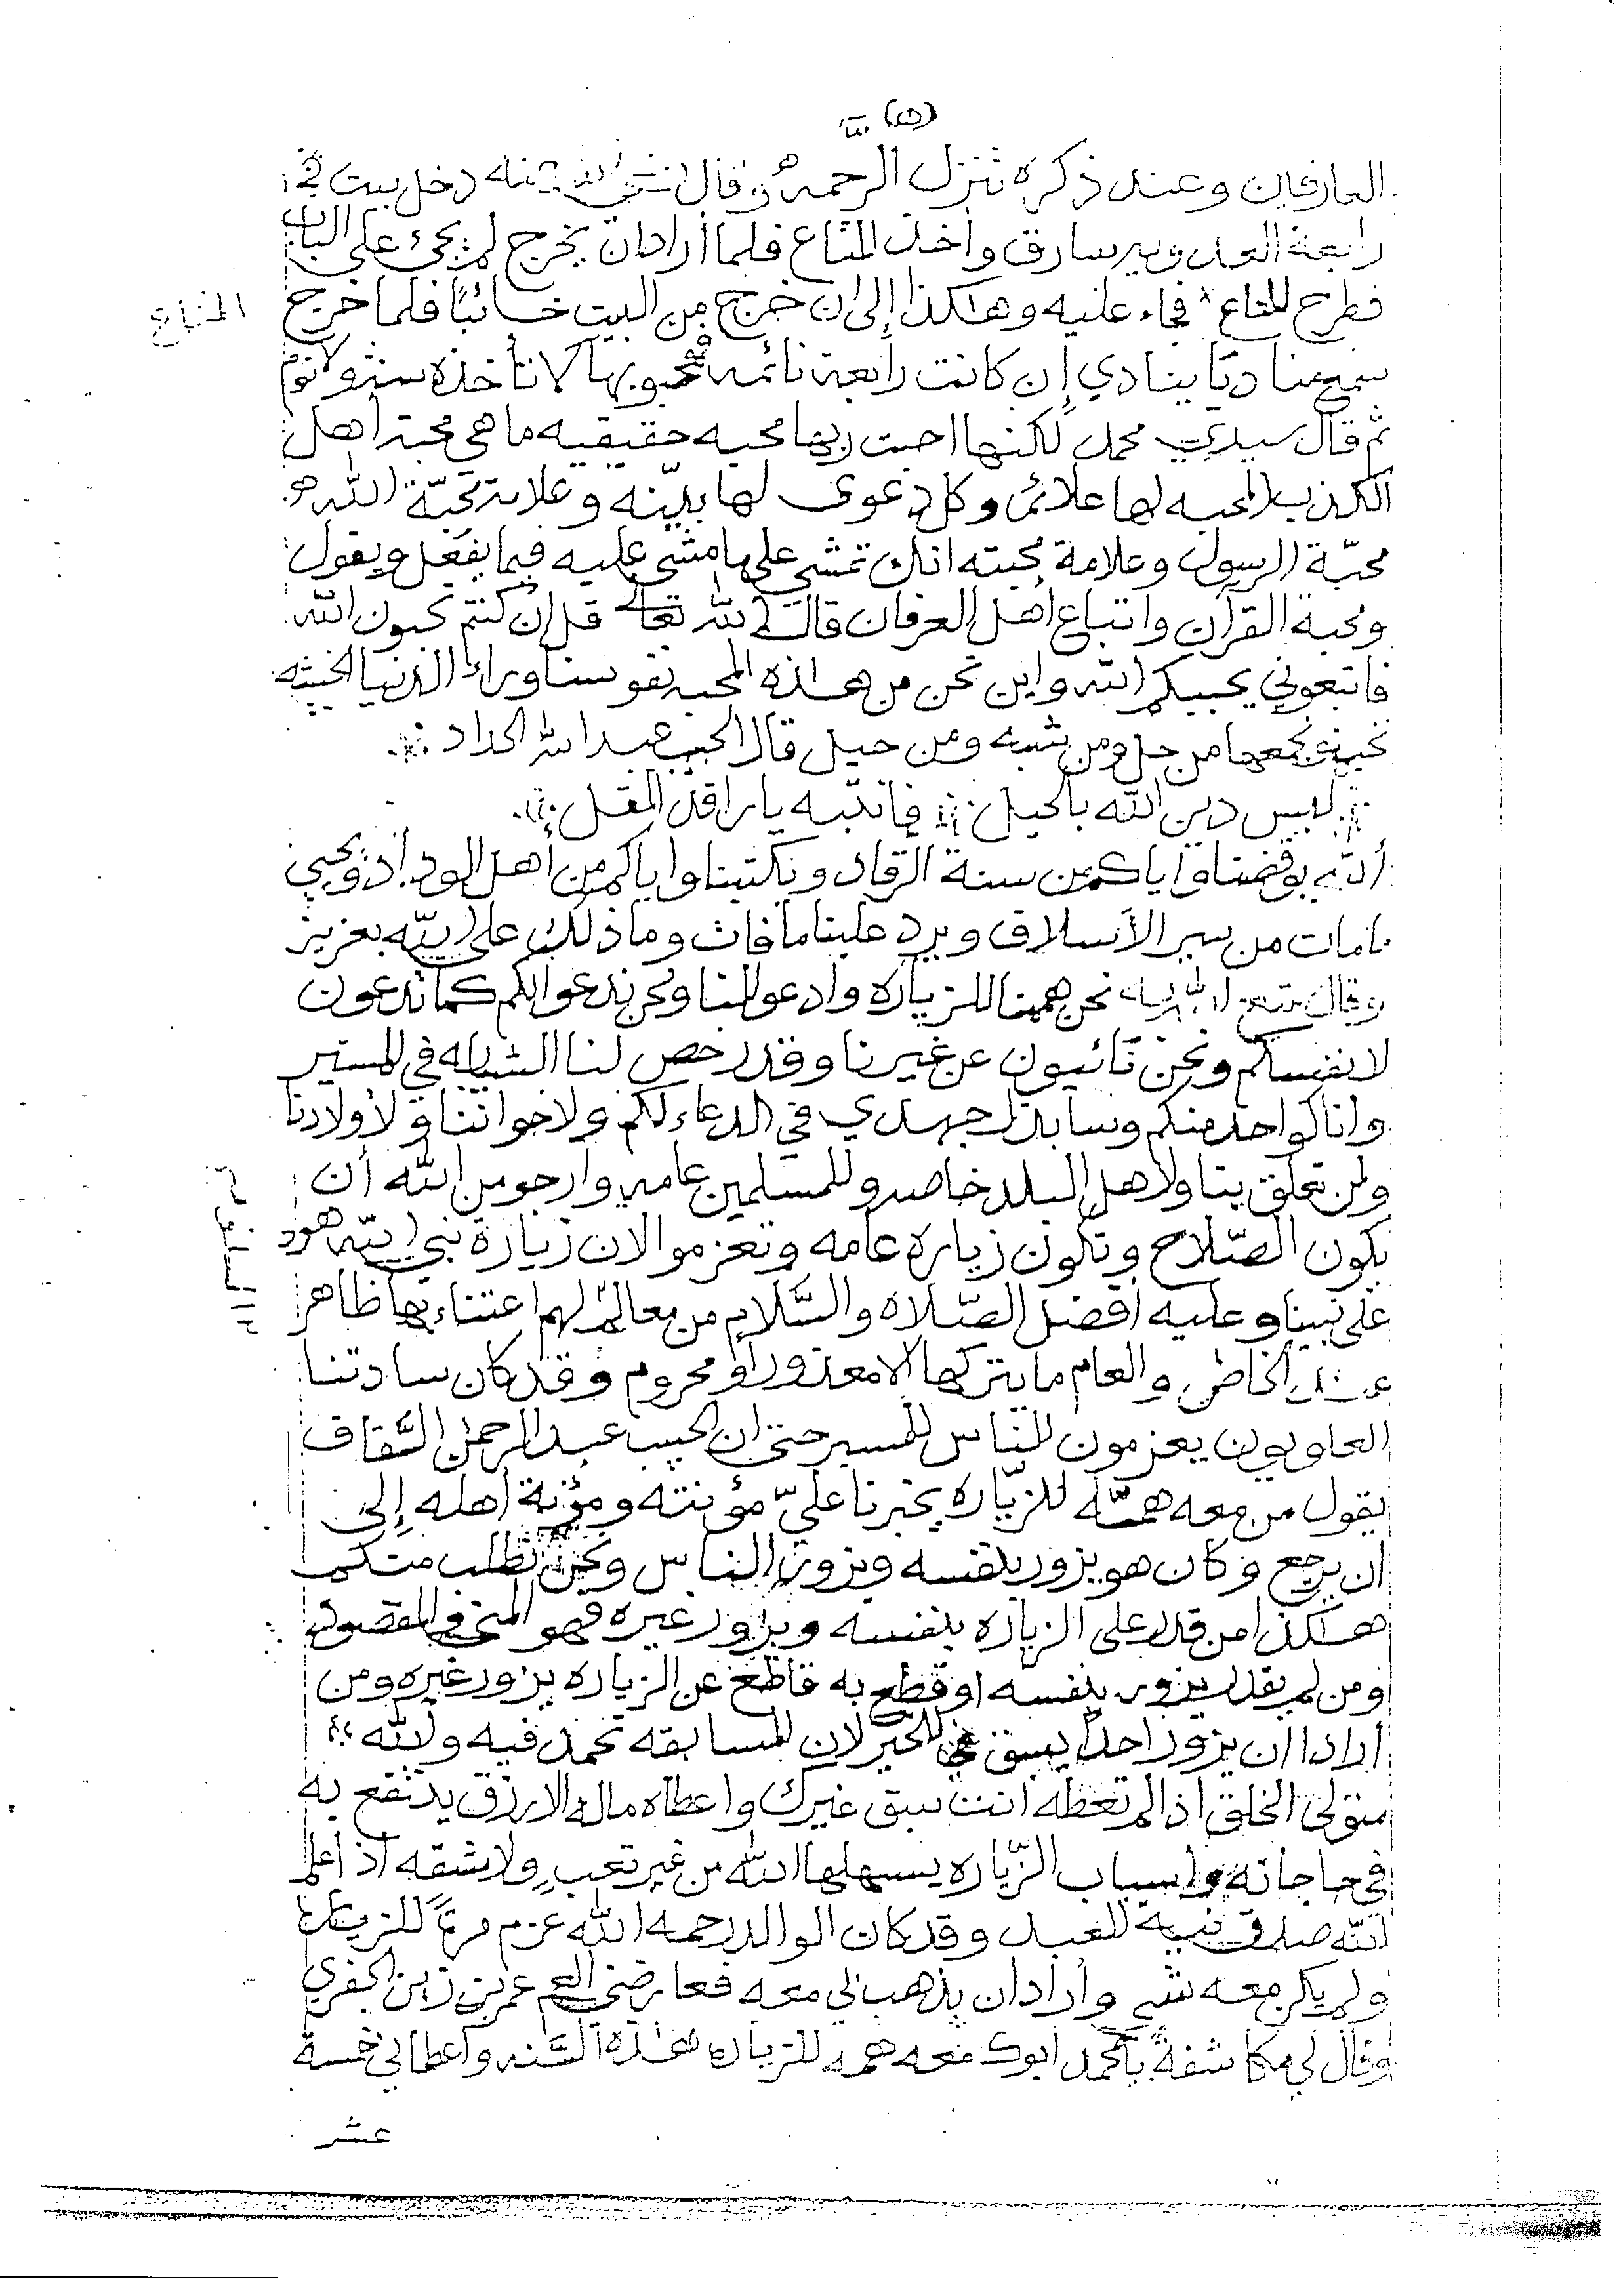 العارفين وعند ذكره تنزل الرحمه وقال دخل بيت
رابعة العدويه سارق واخذ المتاع فلما أرادان يخرج لم يجئ على الباب
فطرح المتاع فجاء عليه وهاكذا إلى ان خرج من البيت خائبًا فلما خرج
المتاع
سمع مناديًا ينادي إن كانت رابعة نائمه فمحبوبها لا تأخذه سنة ولا نوم
ثم قال سيدي محمد لكنها احبت ربها محبه حقيقيه ما هي محبة أهل
الكذب المحبه لها علائم وكل دعوى لها بيّنه وعلامة محبّة الله هو
محبّة الرسول وعلامة محبته انك تمشي على ما مشى عليه فيما يفعل ويقول
ومحبة القرآن واتباع أهل العرفان قال الله تعالى قل ان كنتم تحبون الله
فاتبعوني يحببكم الله واين نحن من هاذه المحبه نفوسنا وراء الدنيا الخبيثه
نجمعها من حل ومن شبه ومن حيل قال الحبيب عبدالله الحداد
ليس دين الله بالحيل فانتبه يا راقد المقل
ألله يوقضنا واياكم من سنة الرقاد ويكتبنا واياكم من أهل الوداد ويحيي
ما مات من سير الأسلاف ويرد علينا ما فات وما ذلك على الله بعزيز
وقال متع الله به نحن همنا للزياره وادعوا لنا ونحن ندعوا لكم كما تدعون
لانفسكم ونحن نائبون عن غيرنا وقد رخص لنا الشيابه في المسير
وانا كواحد منكم وسابذل جهدي في الدعاء لكم ولاخواننا ولأولادنا
ولمن تعلق بنا ولاهل البلد خاصه وللمسلمين عامه وارجو من الله أن
يكون الصّلاح وتكون زياره عامه وتعزموا الان زيارة نبي الله هود
على نبينا وعليه أفضل الصّلاه والسَّلام من معالم لهم اعتناء بها ظاهر
عند الخاص والعام ما يتركها الا معذور او محروم وقد كان سادتنا
العلويون يعزمون للناس للمسير حتى ان الحبيب عبد الرحمن السَّقاف
يقول من معه همّه للزّياره يخبرنا عليّ مؤنته ومؤنة أهله إلى
ان يرجع وكان هو يزور بنفسه ويزور الناس ونحن نطلب منكم
هاكذا من قدر على الزياره بنفسه ويزور غيره فهو المقصود
ومن لم يقدر يزور بنفسه او قطع به قاطع عن الزياره يزور غيره ومن
أراد ان يزور احدًا يسبق في الخير لان المسابقه تحمد فيه والله
متولى الخلق اذا لم تعطه انت سبق غيرك واعطاه ماله الارزق ينتفع به
في حاجاته واسباب الزّياره يسهلها الله من غير تعبٍ ولا مشقه اذا علم
الله صدق نيه للعبد وقد كان الوالد رحمه الله عزم مرةً للزياره
ولم يكن معه شي وأراد ان يذهب بي معه فعارضني العم عمر بن زين الجفري
وقال لي مكاشفةً يا محمد ابوك معه همه للزياره هذه السَّنه وأعطاني خمسة
عشر